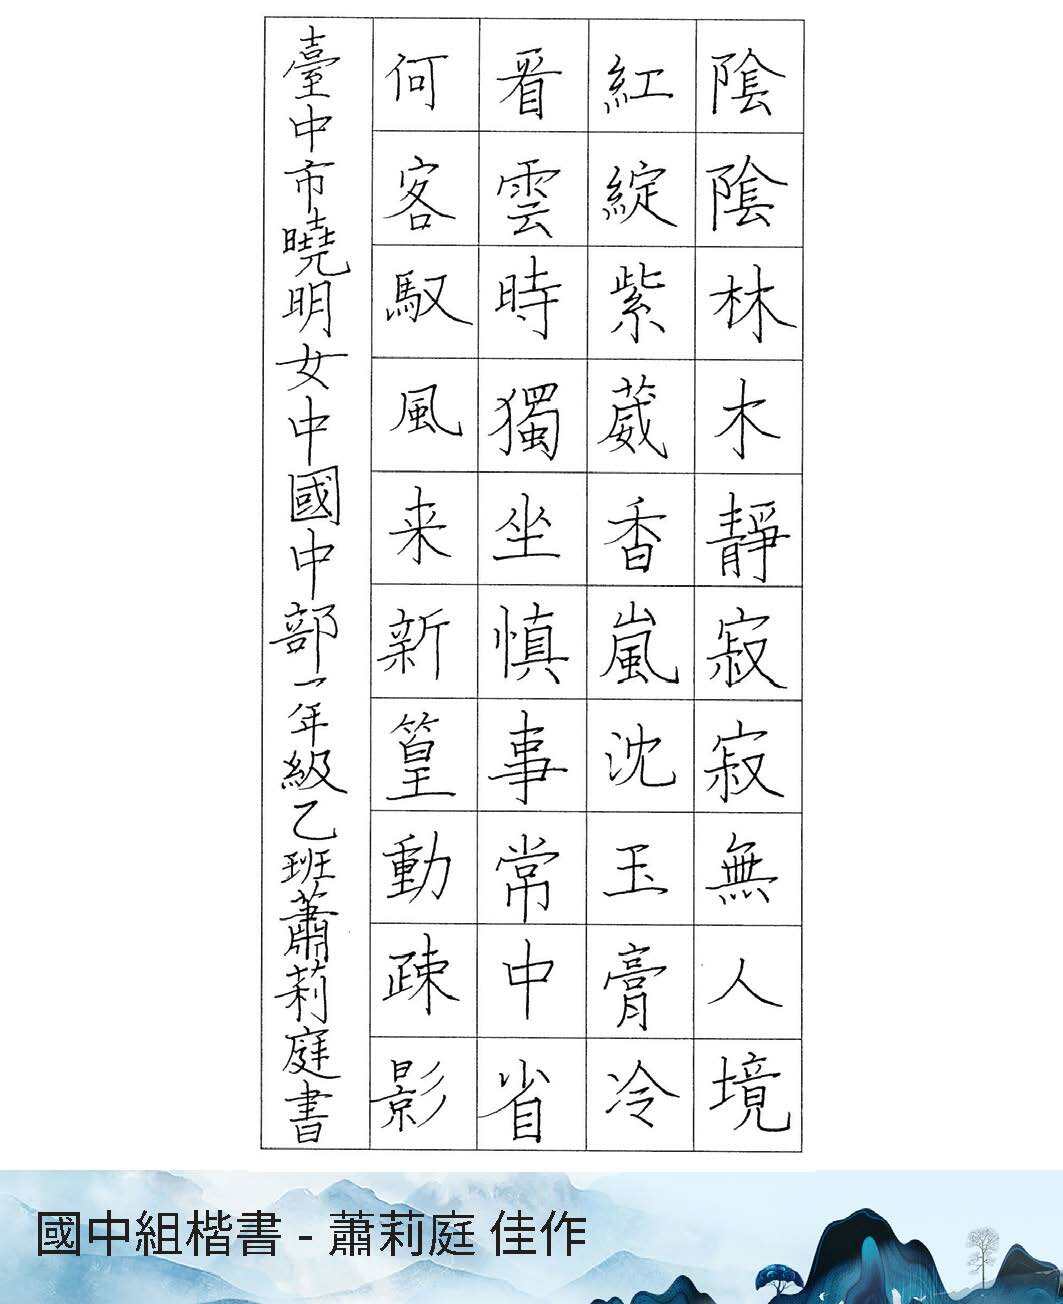 陰陰林木靜寂寂無人境
紅綻紫葳香嵐沈玉膏冷
看雲時獨坐慎事常中省
何客馭風来新篁動疎影
臺中市曉明女中國中部一年級乙班蕭莉庭書
國中組楷書 - 蕭莉庭 佳作